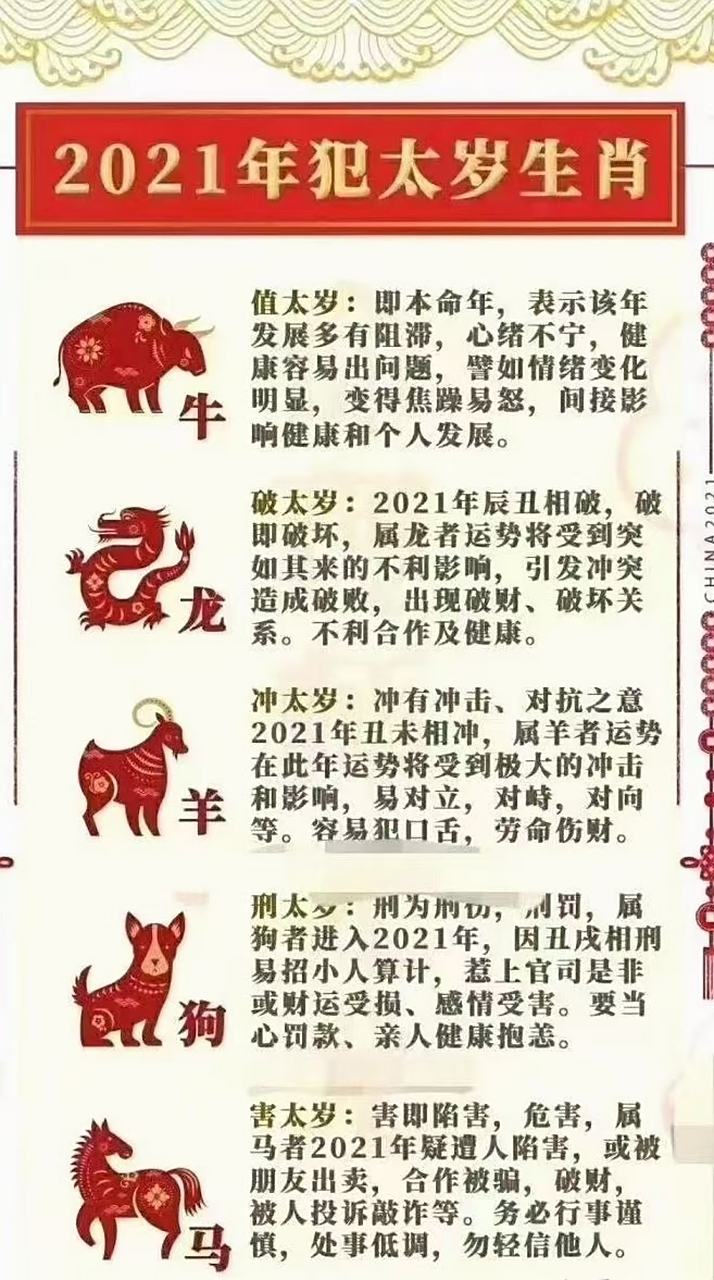 2021年犯太岁生肖
值太岁：即本命年，表示该年
发展多有阻滞，心绪不宁，健
康容易出问题，譬如情绪变化
明显，变得焦躁易怒，间接影
响健康和个人发展。
牛
破太岁：2021年辰丑相破，破
即破坏，属龙者运势将受到突
如其来的不利影响，引发冲突
造成破败，出现破财、破坏关
系。不利合作及健康。
龙
冲太岁：冲有冲击、对抗之意
2021年丑未相冲，属羊者运势
在此年运势将受到极大的冲击
和影响，易对立，对峙，对向
等。容易犯口舌，劳命伤财。
羊
刑太岁：刑为刑伤，刑罚，属
狗者进入2021年，因丑戌相刑
易招小人算计，惹上官司是非
或财运受损、感情受害。要当
心罚款、亲人健康抱恙。
狗
害太岁：害即陷害，危害，属
马者2021年疑遭人陷害，或被
朋友出卖，合作被骗，破财，
被人投诉敲诈等。务必行事谨
慎，处事低调，勿轻信他人。
马
CHINA2021